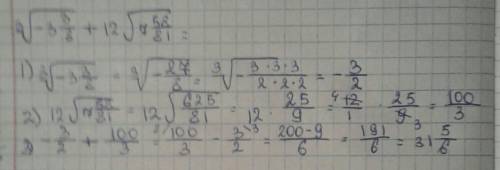 ∛(-3 3/8) + 12√(7 58/81) =
1) ∛(-3 3/8) = ∛(-27/8) = ∛(-3·3·3/2·2·2) = -3/2
2) 12√(7 58/81) = 12√(625/81) = 12 · 25/9 = 12/1 · 25/9 = 100/3
3) -3/2 + 100/3 = 100/3 - 3/2 = 200-9/6 = 191/6 = 31 5/6